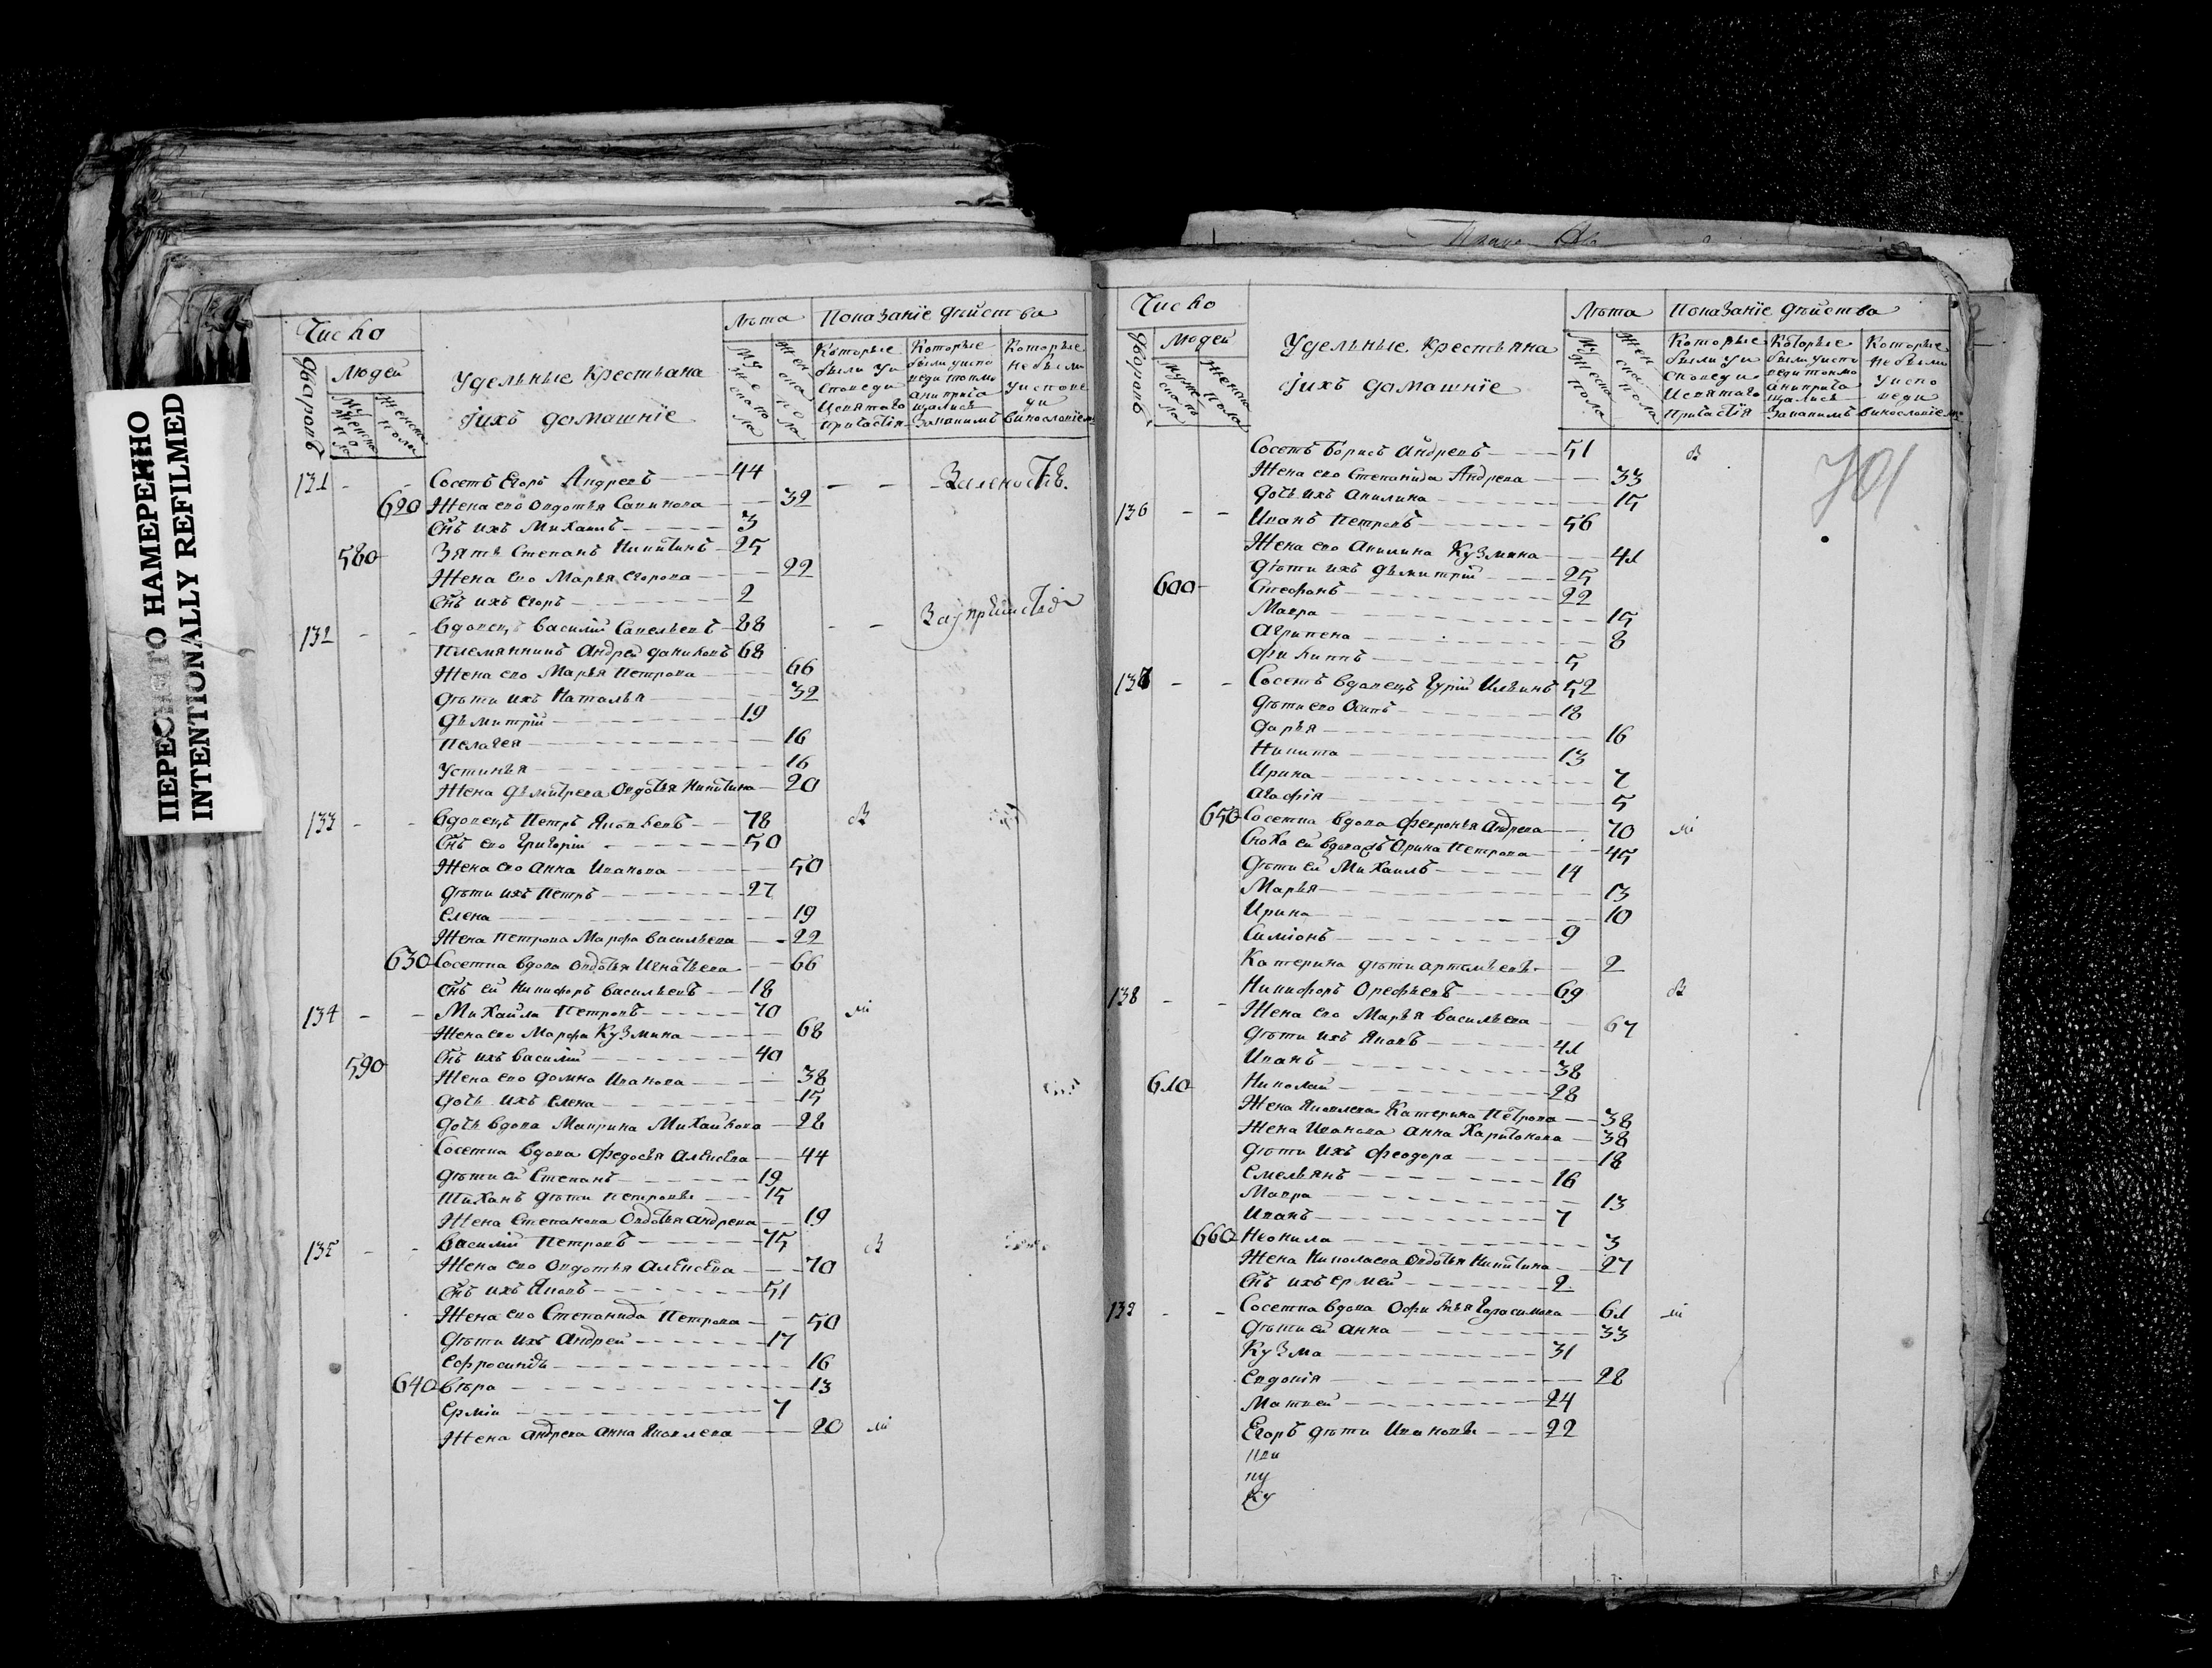 ПЕРЕСНЯТО НАМЕРЕННО
INTENTIONALLY REFILMED
Число
Дворовъ
Людей
Мужеска пола
Женска пола
Удельные крестьяна
и ихъ домашніе
Лѣта
Мужеска пола
Женска пола
Показаніе дѣйства
Которые были у исповеди и святаго причастія
Которые были у исповеди токмо а не причащались за какимъ
Которые не были у исповеди винословіемъ
131 - - Сосетъ Егоръ Андреевъ 44 За леностів.
620 Жена ево Овдотья Савинова 32
Снъ ихъ Михаилъ 3
580 Зять Степанъ Никитинъ 25
Жена ево Марья Егорова 22
Снъ ихъ Егоръ 2
132 - - Вдовецъ Василій Савельевъ 88
Племянникъ Андрей Даниловъ 68
Жена ево Марья Петрова 66
Дѣти ихъ Наталья 32
Дьмитрій 19
Пелагея 16
Устинья 16
Жена Дьмитрева Овдотья Никитина 20
133 - - Вдовецъ Петръ Яковлевъ 78
Снъ ево Григорій 50
Жена ево Анна Иванова 50
Дѣти ихъ Петръ 27
Елена 19
Жена Петрова Марфа Васильева 22
630 Сосетка вдова Овдотья Игнатьева 66
Снъ ей Никифоръ Васильевъ 18
134 - - Михайла Петровъ 70
Жена ево Марфа Кузмина 68
590 Снъ ихъ Василій 40
Жена ево Домна Иванова 38
Дочь ихъ Елена 15
Дочь вдова Маврина Михайлова 28
Сосетка вдова Федосья Алексева 44
Дѣти ей Степанъ 19
Тиханъ дѣти Петровы 15
Жена Степанова Овдотья Андрева 19
135 - - Василій Петровъ 75
Жена ево Овдотья Алексева 70
Снъ ихъ Яковъ 51
Жена ево Степанида Петрова 50
Дѣти ихъ Андрей 17
Ефросинья 16
640 Вѣра 13
Ермій 7
Жена Андрева Анна Яковлева 20
Число
Дворовъ
Людей
Мужеска пола
Женска пола
Удельные крестьяна
и ихъ домашніе
Лѣта
Мужеска пола
Женска пола
Показаніе дѣйства
Которые были у исповеди и святаго причастія
Которые были у исповеди токмо а не причащались за какимъ
Которые не были у исповеди винословіемъ
701
Сосетъ Борисъ Андревъ 51
Жена ево Степанида Андрева 33
Дочь ихъ Акилина 15
136 - - Иванъ Петровъ 56
Жена ево Акилина Кузмина 41
Дѣти ихъ Дьмитрій 25
600 Стефанъ 22
Мавра 15
Агрипена 8
Филиппъ 5
137 - - Сосетъ вдовецъ Гурій Ильинъ 52
Дѣти ево Осипъ 18
Дарья 16
Никита 13
Ирина 7
Агафія 5
650 Сосетка вдова Февронья Андрева 70
Сноха ей вдова Орина Петрова 45
Дѣти ей Михаилъ 14
Марья 13
Ирина 10
Симіонъ 9
Катерина дѣти Артемьевы 2
138 - - Никифоръ Орефьевъ 69
Жена ево Марья Васильева 67
Дѣти ихъ Яковъ 41
Иванъ 38
610 Николай 28
Жена Яковлева Катерина Петрова 38
Жена Иванова Анна Харитонова 38
Дѣти ихъ Феодора 18
Емельянъ 16
Мавра 13
Иванъ 7
660 Неонила 3
Жена Николаева Овдотья Никитина 27
Снъ ихъ Ермей 2
139 - - Сосетка вдова Офимья Гарасимова 61
Дѣти ей Анна 33
Кузма 31
Евдокія 28
Матвей 24
Егоръ дѣти Ивановы 22